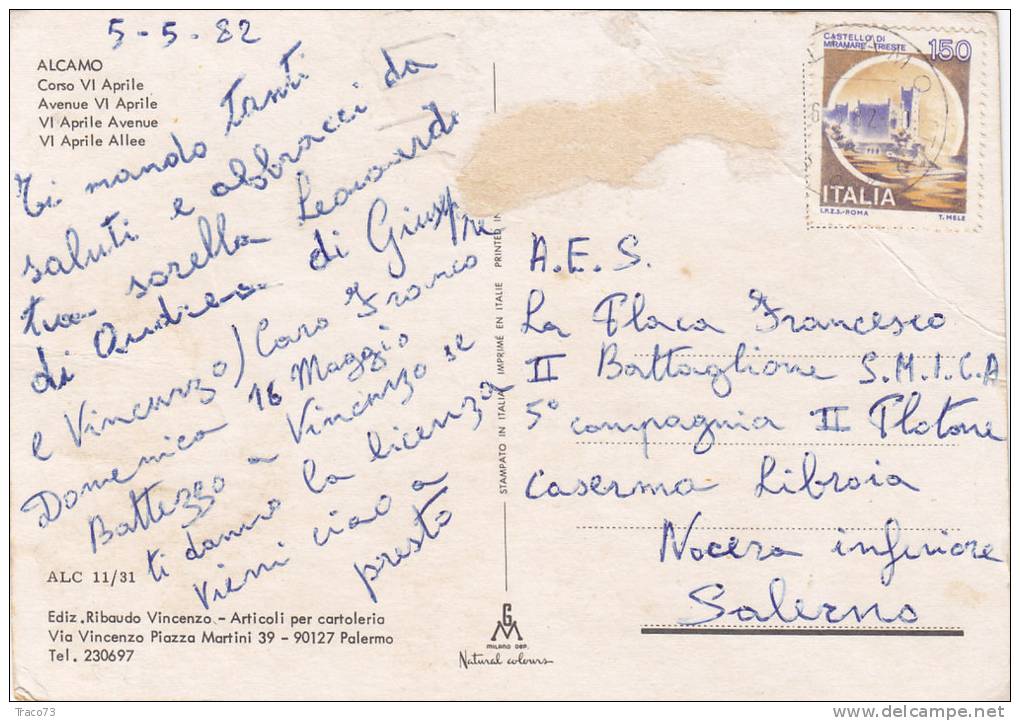 5-5-82
ALCAMO
Corso VI Aprile
Avenue VI Aprile
VI Aprile Avenue
VI Aprile Allee
Ti mando tanti
saluti e abbracci da
tua sorella Leonarda
di Andrea di Giuseppe
e Vincenzo) Caro Franco
Domenica 16 Maggio
Battezzo a Vincenzo se
ti danno la licenza
vieni ciao a
presto
ALC 11/31
Ediz. Ribaudo Vincenzo - Articoli per cartoleria
Via Vincenzo Piazza Martini 39 - 90127 Palermo
Tel. 230697
STAMPATO IN ITALIA IMPRIMÉ EN ITALIE PRINTED IN
GM
MILANO DEP.
Natural colours
CASTELLO DI
MIRAMARE-TRIESTE
150
ITALIA
I.P.Z.S.-ROMA T. MELE
A.E.S.
La Placa Francesco
II Battaglione S.M.I.C.A
5° compagnia II Plotone
caserma Libroia
Nocera inferiore
Salerno
Traco73
delcampe.net